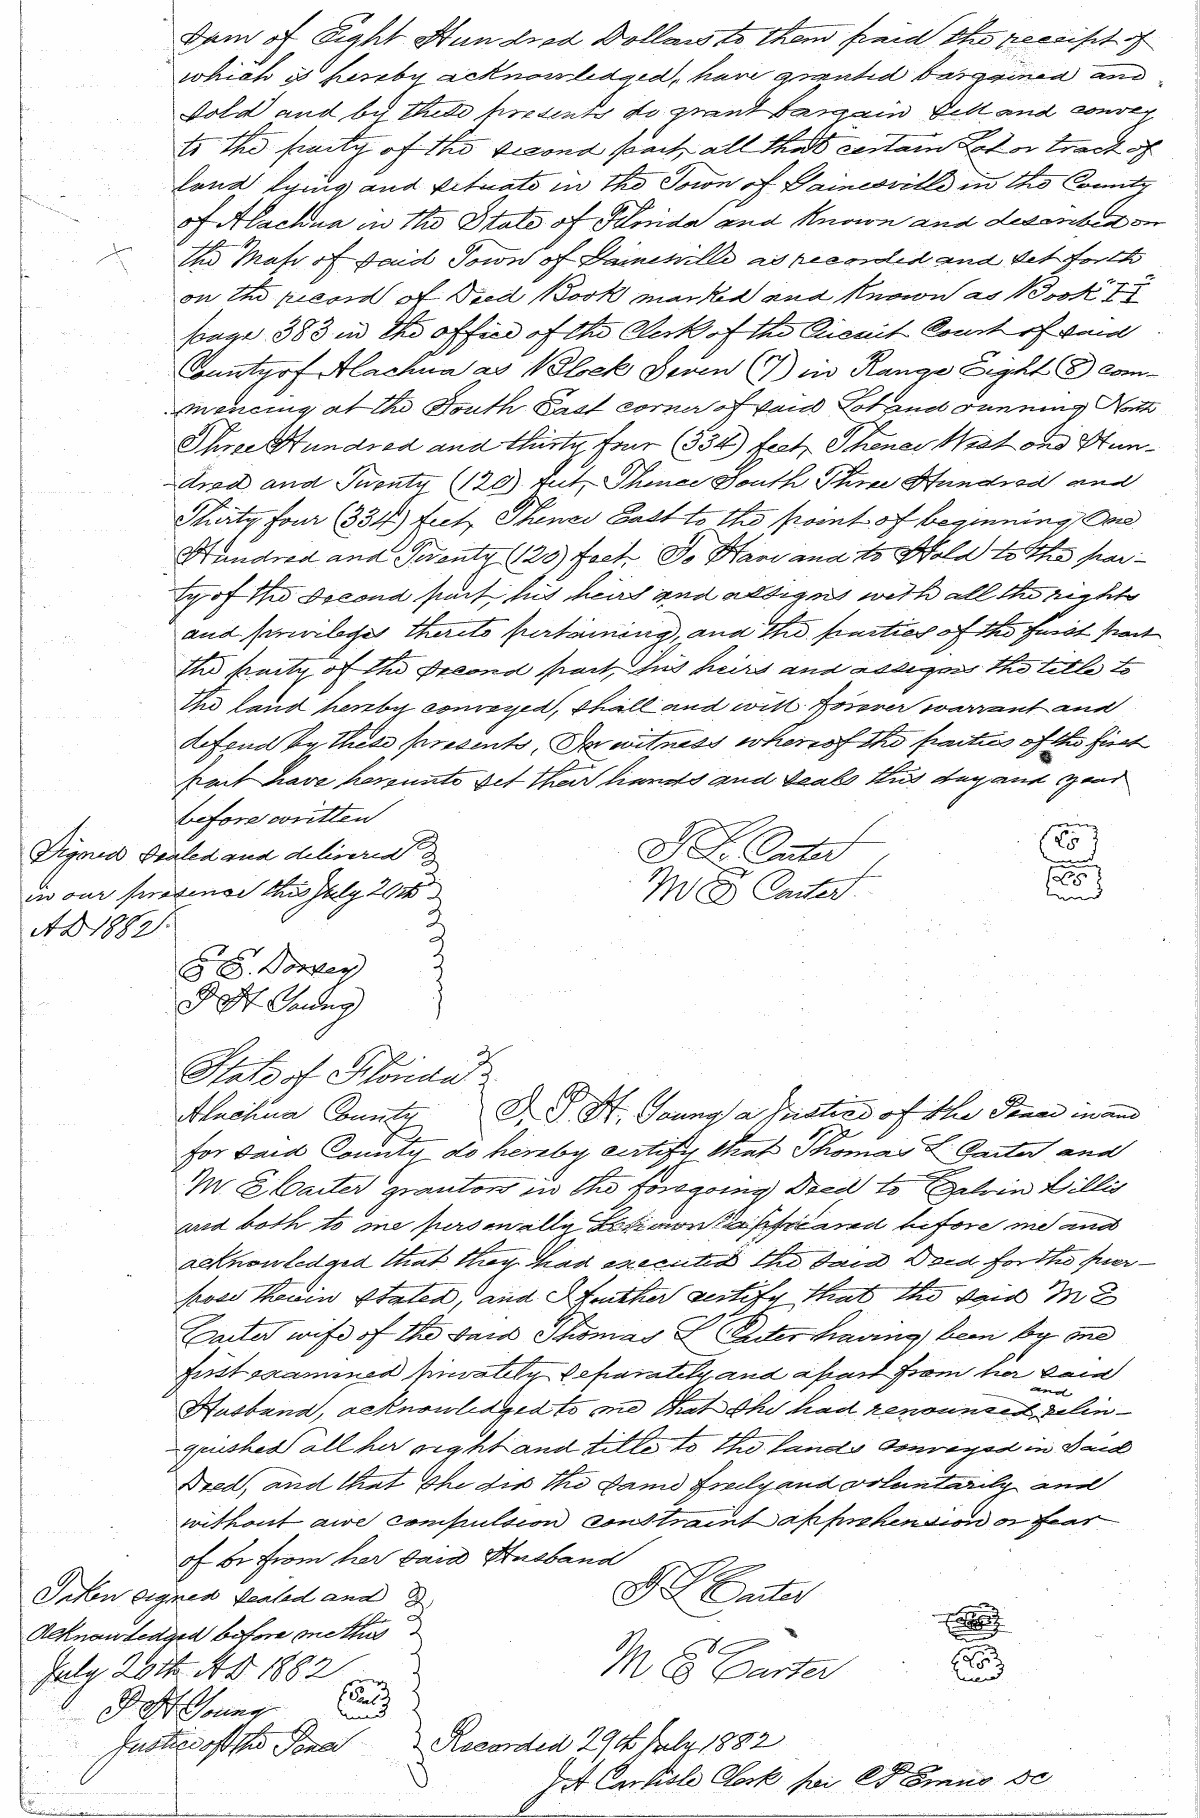 Sum of Eight Hundred Dollars to them paid the receipt of
which is hereby acknowledged, have granted bargained and
sold and by these presents do grant bargain sell and convey
to the party of the second part, all that certain Lot or tract of
land lying and situate in the Town of Gainesville in the County
of Alachua in the State of Florida and Known and described on
the Map of said Town of Gainesville as recorded and set forth
on the record of Deed Book marked and Known as Book
page 383 in the office of the Clerk of the Circuit Court of said
County of Alachua as Block Seven (7) in Range Eight (8) com-
mencing at the South East corner of said Lot and running North
Three Hundred and thirty four (334) feet, Thence West one Hun-
dred and Twenty (120) feet, Thence South Three Hundred and
Thirty four (334) feet, Thence East to the point of beginning One
Hundred and Twenty (120) feet. To Have and to Hold to the par-
ty of the second part, his heirs and assigns with all the rights
and privileges thereto pertaining, and the parties of the first part
the party of the second part, his heirs and assigns the title to
the land hereby conveyed, shall and will forever warrant and
defend by these presents, In witness whereof the parties of the first
part have hereunto set their hands and seals this day and year
before written
Signed sealed and delivered
in our presence this July 20th
AD 1882
T. L. Carter LS
M E Carter LS
E. Dorsey
P H Young
State of Florida
Alachua County I, P. H. Young a Justice of the Peace in and
for said County do hereby certify that Thomas L Carter and
M E Carter grantors in the foregoing Deed to Calvin Lillis
and both to me personally Known appeared before me and
acknowledged that they had executed the said Deed for the pur-
pose therein stated, and I further certify that the said M E
Carter wife of the said Thomas L Carter having been by me
first examined privately separately and apart from her said
Husband, acknowledged to me that she had renounced and relin-
quished all her right and title to the lands conveyed in said
Deed, and that she did the same freely and voluntarily and
without awe compulsion constraint apprehension or fear
of or from her said Husband
Taken signed sealed and
Acknowledged before me this
July 20th AD 1882
P H Young Seal
Justice of the Peace
T L Carter
M E Carter LS
Recorded 29th July 1882
J A Carlisle Clerk per DC